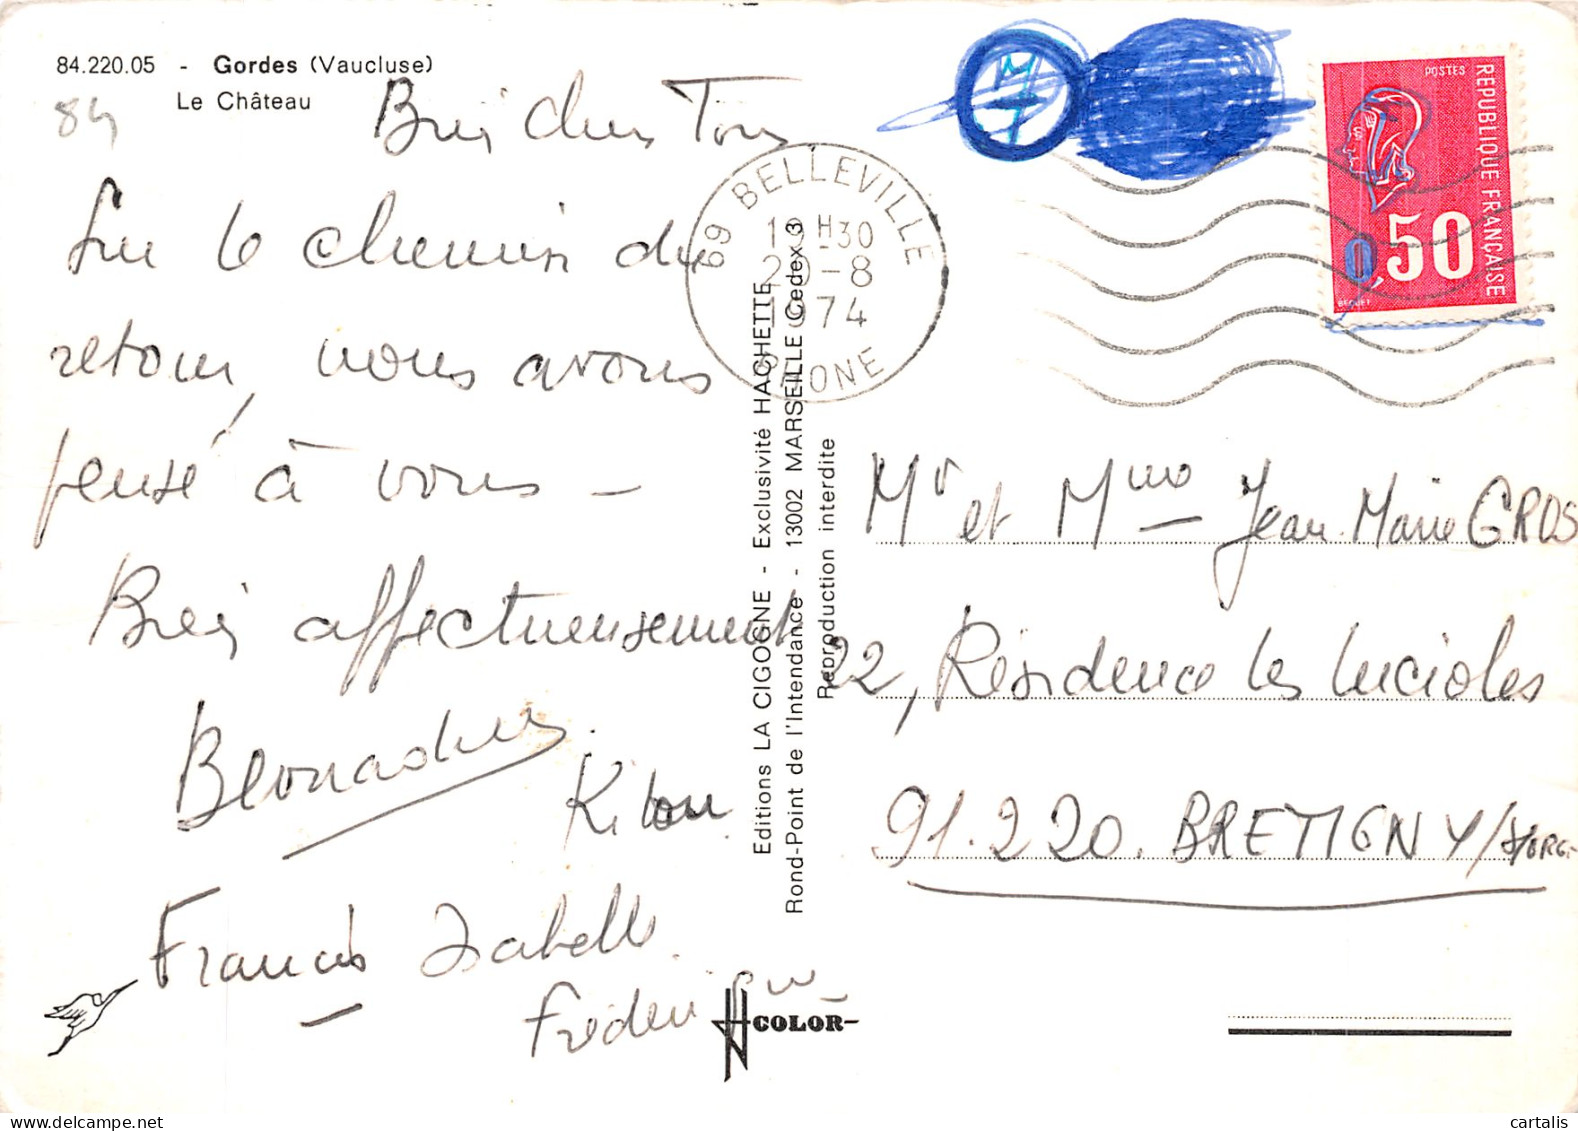 84.220.05 - Gordes (Vaucluse)
Le Château
84
Bien chers Tous
Sur le chemin du
retour, nous avons
pensé à vous -
Bien affectueusement
Francis Isabelle
69 BELLEVILLE
19H30
20-8
1974
RHONE
Editions LA CIGOGNE - Exclusivité HACHETTE
Rond-Point de l'Intendance - 13002 MARSEILLE Cedex 3
Reproduction interdite
COLOR
POSTES
REPUBLIQUE FRANÇAISE
0,50
BEQUET
Mr et Mme Jean Marie GROS
22, Résidence les Lucioles
91.220. BRETIGNY s/ORGE
cartalis